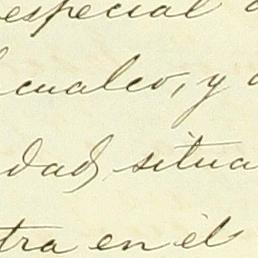 especial
cualco, y
dad, situa
tra en él